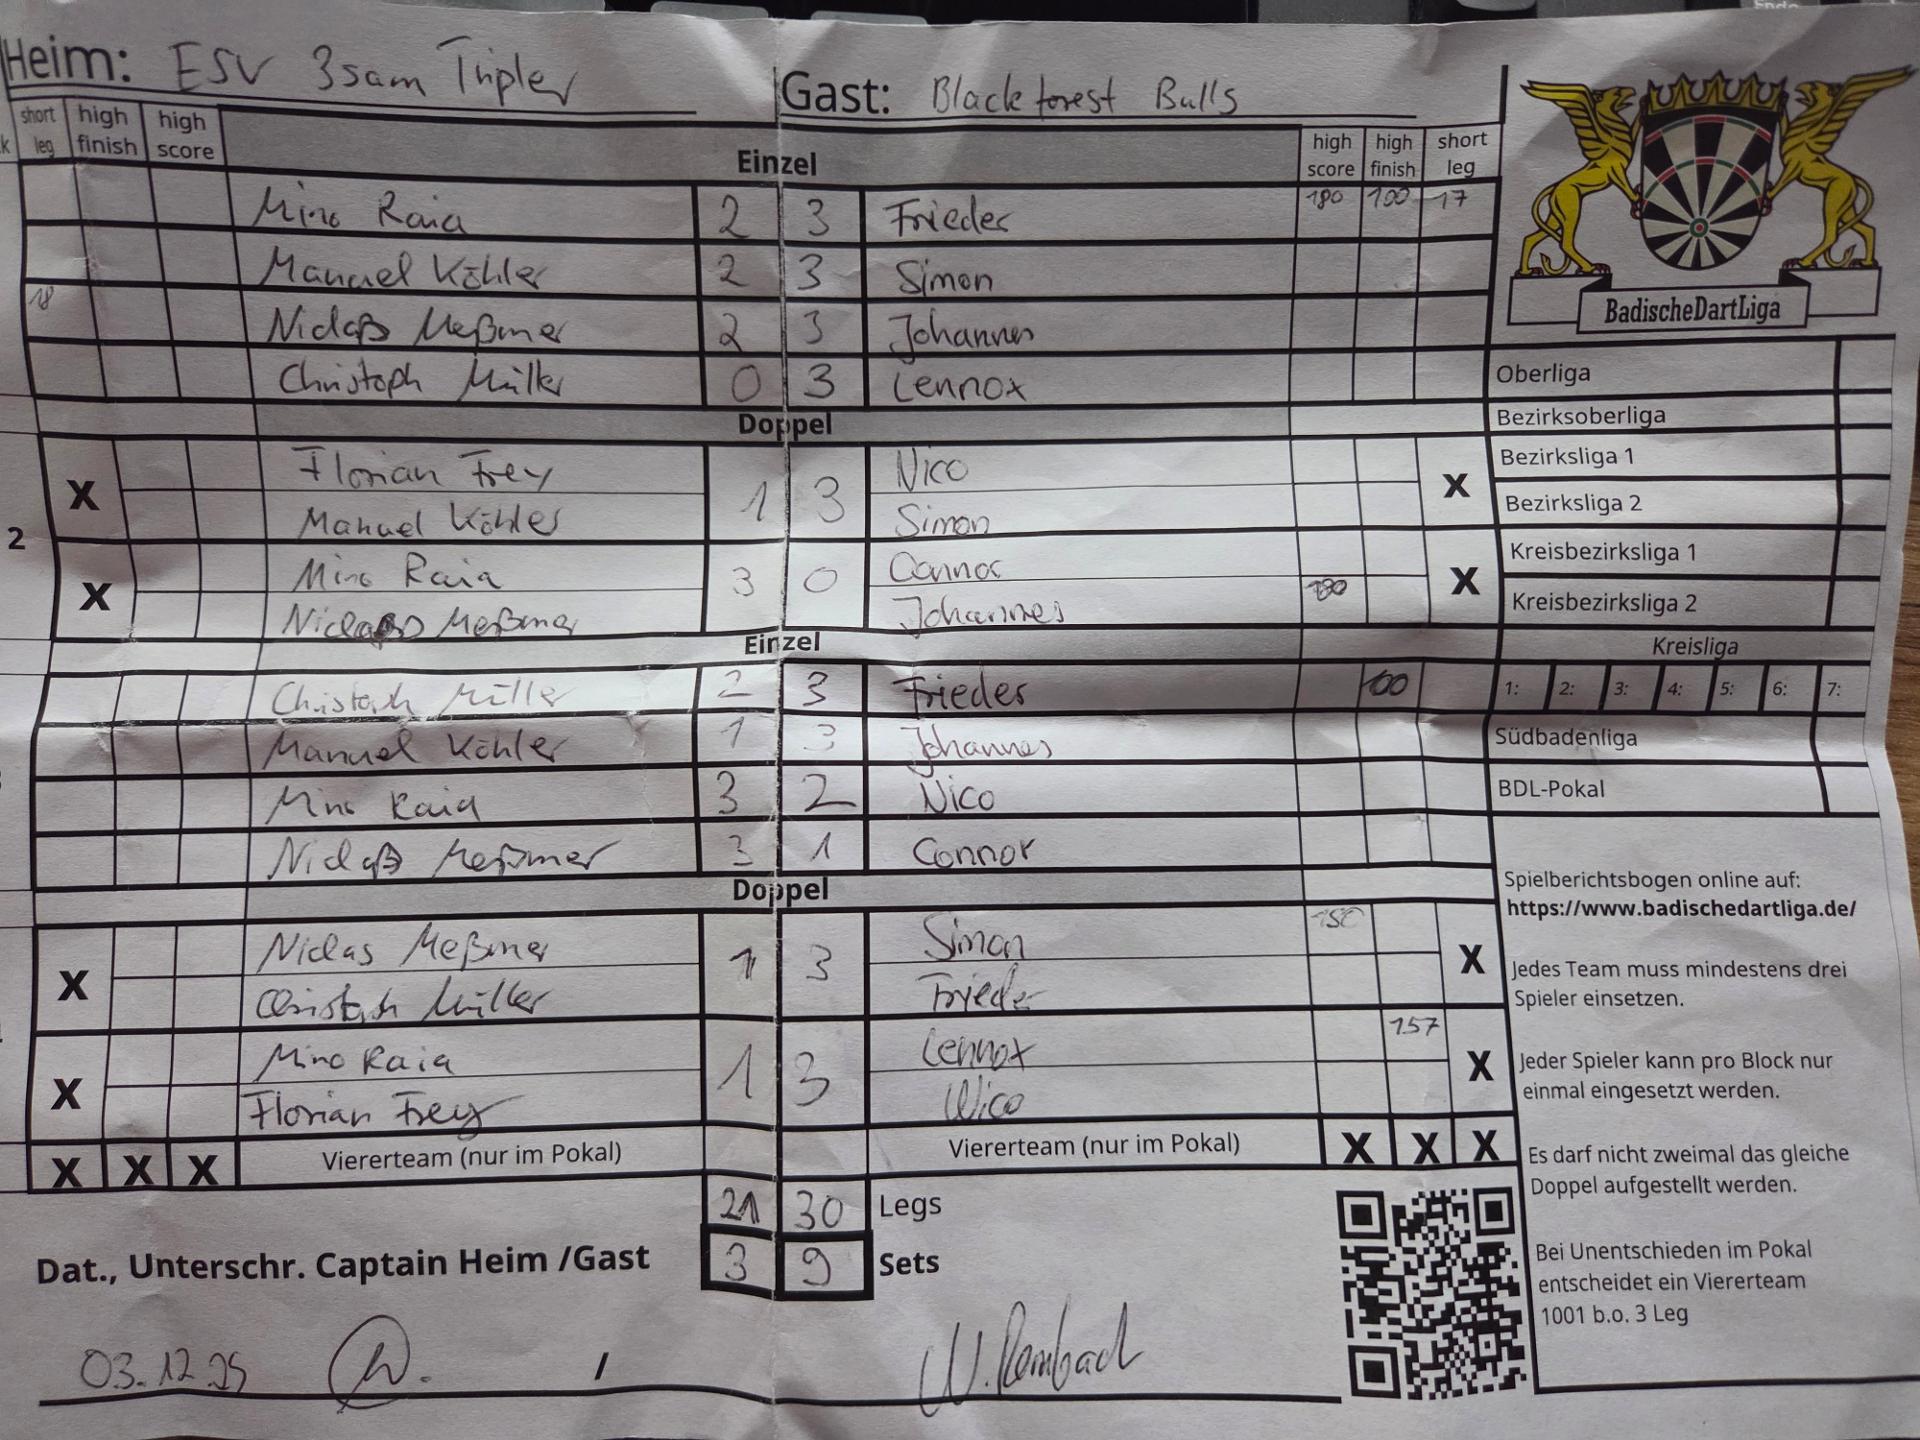 Heim: ESV 3sam Tripler Gast: Blackforest Bulls
short leg high finish high score Einzel high score high finish short leg
Mino Raia 2 3 Frieder 180 100 17
Manuel Köhler 2 3 Simon
18 Niclaß Meßmer 2 3 Johannes
Christoph Müller 0 3 Lennox
Doppel
2
X Florian Frey 1 3 Nico X
Manuel Köhler Simon
X Mino Raia 3 0 Connor X
Niclaß Meßmer Johannes 180
Einzel
Christoph Müller 2 3 Frieder 100
Manuel Köhler 1 3 Johannes
Mino Raia 3 2 Nico
Niclaß Meßmer 3 1 Connor
Doppel
X Niclas Meßmer 1 3 Simon X
Christoph Müller Frieder
X Mino Raia 1 3 Lennox 157 X
Florian Frey Nico
X X X Viererteam (nur im Pokal) Viererteam (nur im Pokal) X X X
21 30 Legs
3 9 Sets
Dat., Unterschr. Captain Heim /Gast
03.12.25 / W. Rombach
BadischeDartLiga
Oberliga
Bezirksoberliga
Bezirksliga 1
Bezirksliga 2
Kreisbezirksliga 1
Kreisbezirksliga 2
Kreisliga
1: 2: 3: 4: 5: 6: 7:
Südbadenliga
BDL-Pokal
Spielberichtsbogen online auf:
https://www.badischedartliga.de/
Jedes Team muss mindestens drei
Spieler einsetzen.
Jeder Spieler kann pro Block nur
einmal eingesetzt werden.
Es darf nicht zweimal das gleiche
Doppel aufgestellt werden.
Bei Unentschieden im Pokal
entscheidet ein Viererteam
1001 b.o. 3 Leg